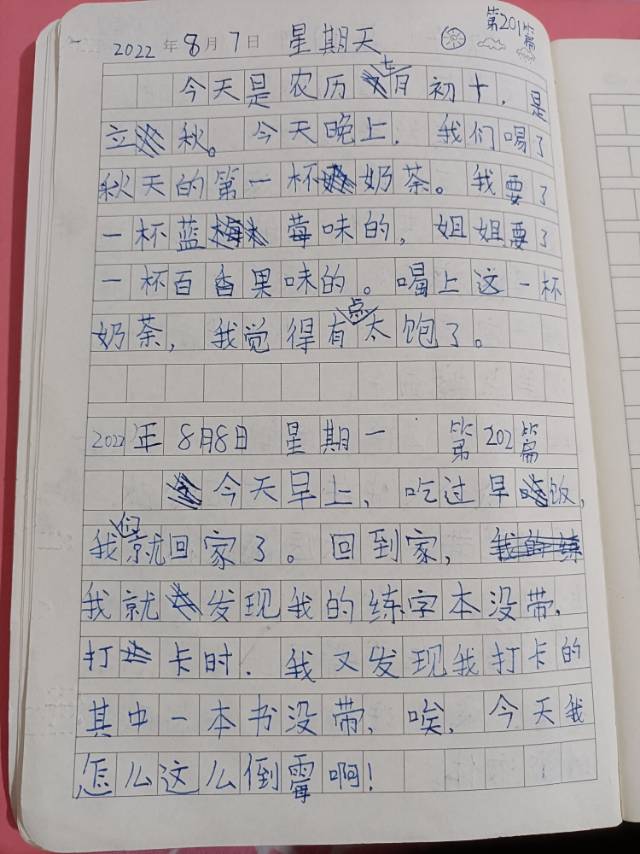 第201篇
2022年8月7日 星期天
今天是农历七月初十，是
立秋。今天晚上，我们喝了
秋天的第一杯奶茶。我要了
一杯蓝莓味的，姐姐要了
一杯百香果味的。喝上这一杯
奶茶，我觉得有点太饱了。
2022年8月8日 星期一 第202篇
今天早上，吃过早饭，
我们就回家了。回到家，
我就发现我的练字本没带，
打卡时，我又发现我打卡的
其中一本书没带，唉，今天我
怎么这么倒霉啊！